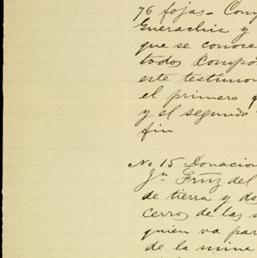 76 fojas - Com
Guerachic y
que se conoce
todos Compo
este testimon
el primero q
y el segundo
fin
No 15 Donacion
Jn Fruz del
de tierra y do
cerros de las
quien va par
de la mina